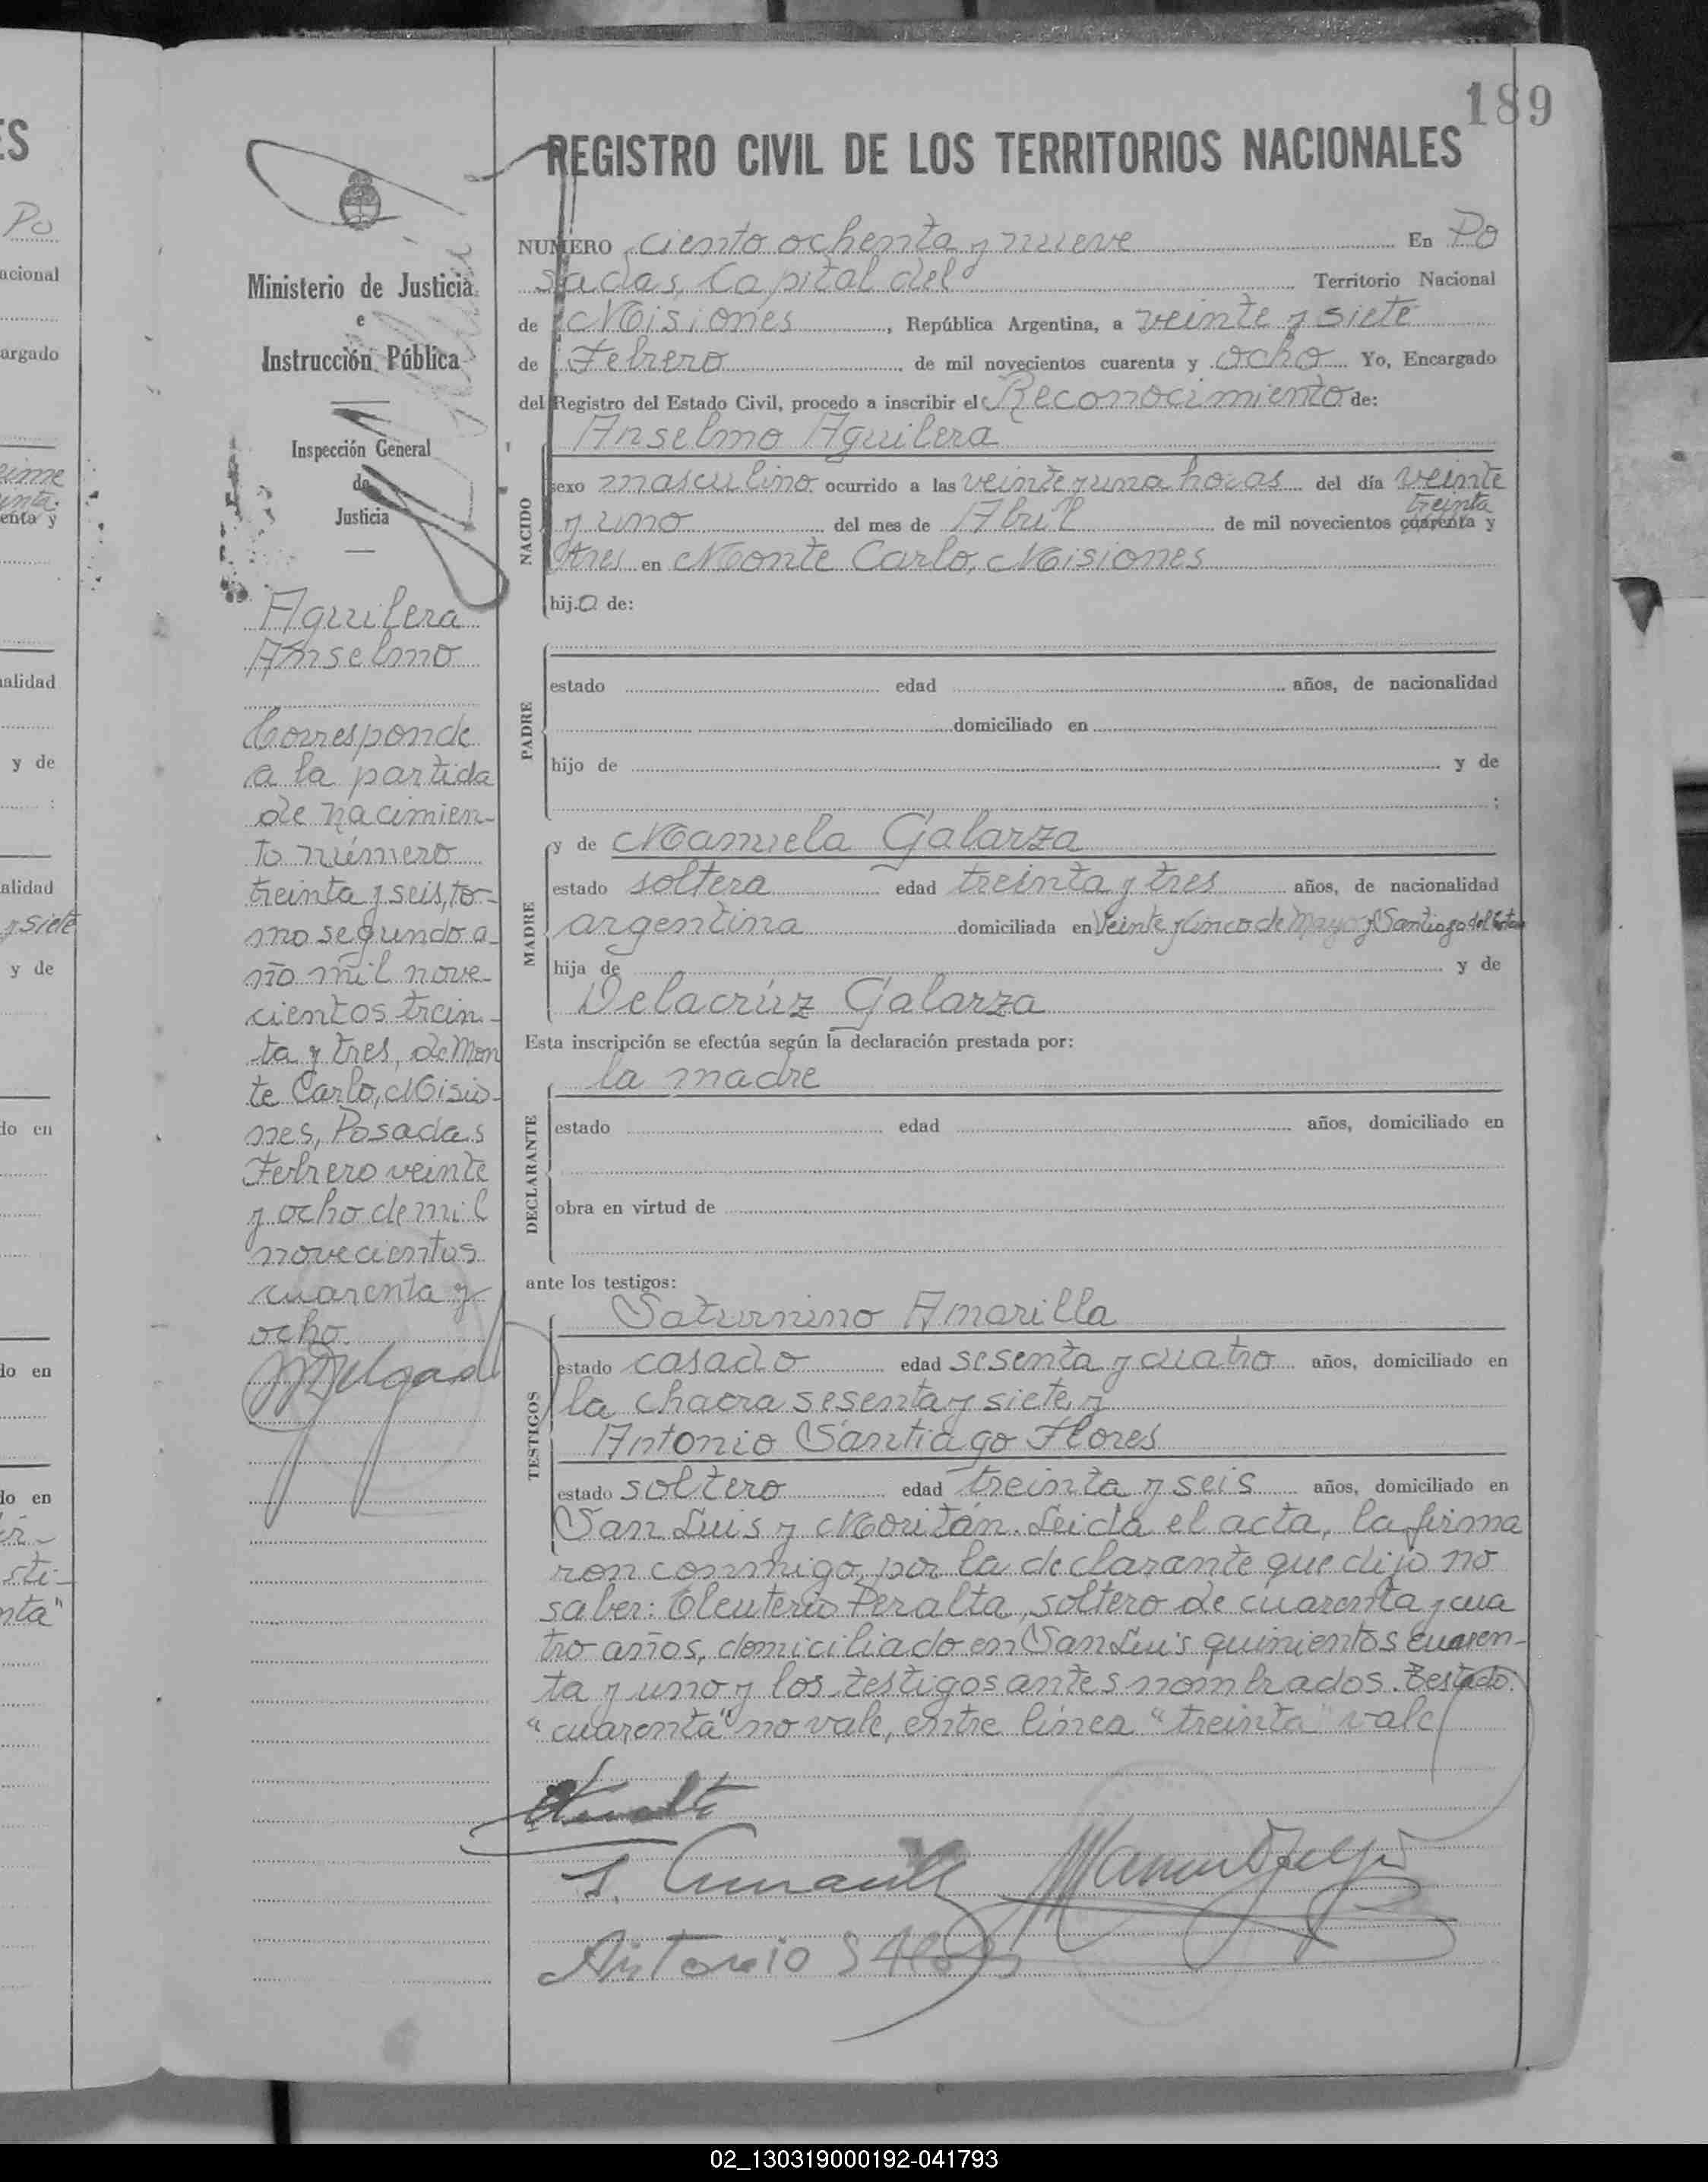 189
REGISTRO CIVIL DE LOS TERRITORIOS NACIONALES
Ministerio de Justicia
e
Instrucción Pública
Inspección General
de
Justicia
Aguilera
Anselmo
Corresponde
a la partida
de nacimien-
to número
treinta y seis, to-
mo segundo a-
ño mil nove-
cientos trein-
ta y tres, de Mon
te Carlo, Misio-
nes, Posadas
Febrero veinte
y ocho de mil
novecientos
cuarenta y
ocho.
NUMERO ciento ochenta y nueve En Po
sadas, Capital del Territorio Nacional
de Misiones, República Argentina, a veinte y siete
de Febrero de mil novecientos cuarenta y ocho Yo, Encargado
del Registro del Estado Civil, procedo a inscribir el Reconocimiento de:
Anselmo Aguilera
NACIDO
sexo masculino ocurrido a las veinte y una horas del día veinte
y uno del mes de Abril de mil novecientos cuarenta treinta y
tres en Monte Carlo, Misiones
hijo de:
PADRE
estado edad años, de nacionalidad
domiciliado en
hijo de y de
;
MADRE
y de Manuela Galarza
estado soltera edad treinta y tres años, de nacionalidad
argentina domiciliada en Veinte y Cinco de Mayo y Santiago del Estero
hija de y de
Delacrúz Galarza
Esta inscripción se efectúa según la declaración prestada por:
la madre
DECLARANTE
estado edad años, domiciliado en
obra en virtud de
ante los testigos:
TESTIGOS
Saturnino Amarilla
estado casado edad sesenta y cuatro años, domiciliado en
la chacra sesenta y siete y
Antonio Santiago Flores
estado soltero edad treinta y seis años, domiciliado en
San Luis y Moritán. Leida el acta, la firma
ron conmigo, por la declarante que dijo no
saber: Eleuterio Peralta, soltero de cuarenta y cua
tro años, domiciliado en San Luis quinientos cuaren-
ta y uno y los testigos antes nombrados. Testado:
"cuarenta" no vale, entre línea "treinta" vale
Antonio S Flores
ES
Po
acional
argado
enta y
nalidad
y de
:
alidad
y siete
y de
do en
do en
do en
sti-
nta"
02_130319000192-041793